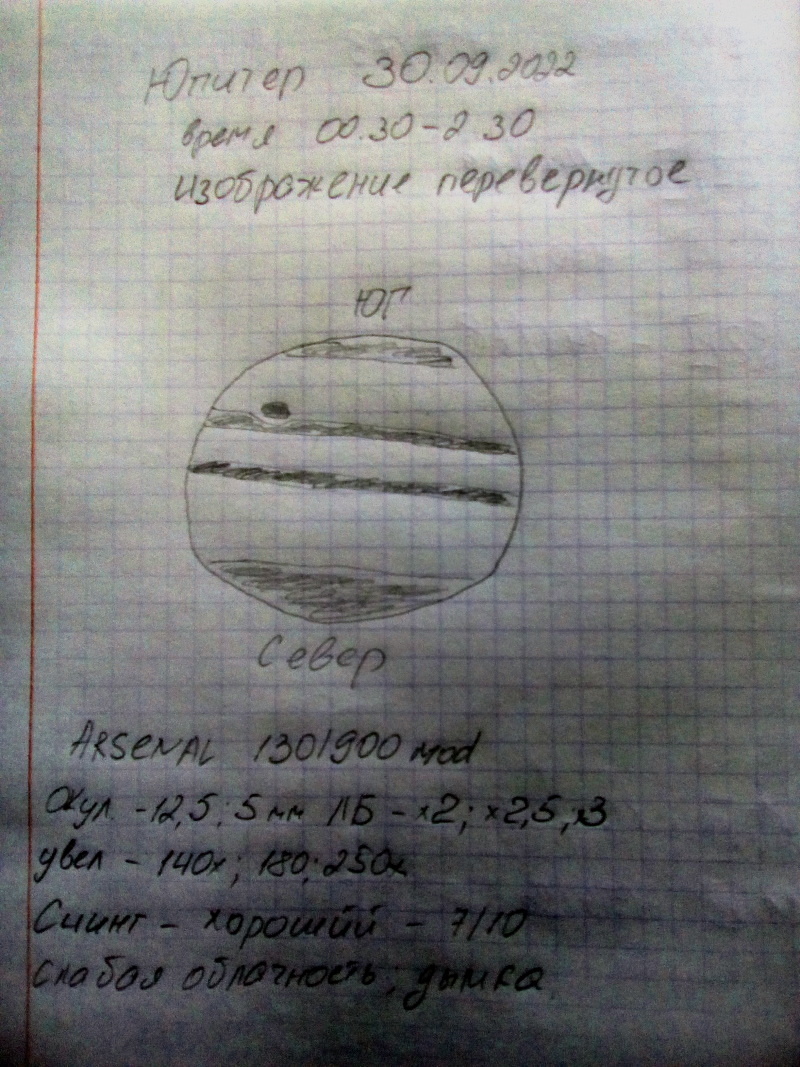 Юпитер 30.09.2022
время 00.30-2 30
изображение перевернутое
ЮГ
Север
ARSENAL 130/900 mod
Окул -12,5; 5 мм ЛБ - x2; x2,5; x3
увел - 140x; 180; 250x
Сиинг - хороший - 7/10
слабая облачность; дымка